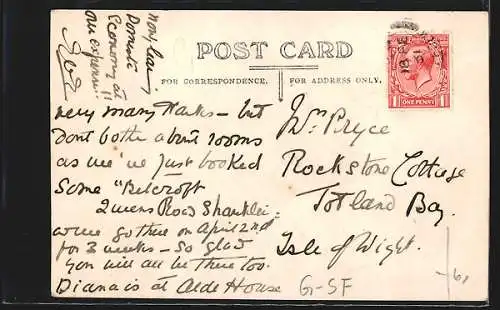 POST CARD
FOR CORRESPONDENCE.
FOR ADDRESS ONLY.
ONE PENNY
very many thanks – but
Dont bother about rooms
as we've just booked
Some "Belcroft
Queens Road Shanklin
we go there on April 2nd
for 3 weeks – So glad
you will all be there too.
Diana is at Alde House
now
Domestic
economy at
our expense!!
Mrs Pryce
Rockstone Cottage
Totland Bay
Isle of Wight.
G-SF